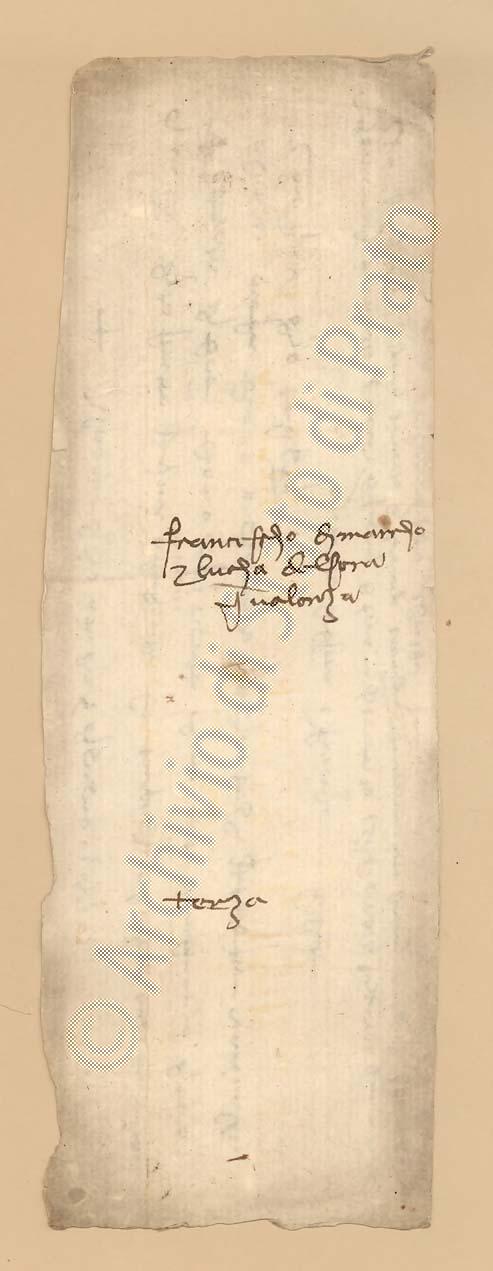 Francischo di marcho
e lucha del sera
in valenza
terza
© Archivio di Stato di Prato